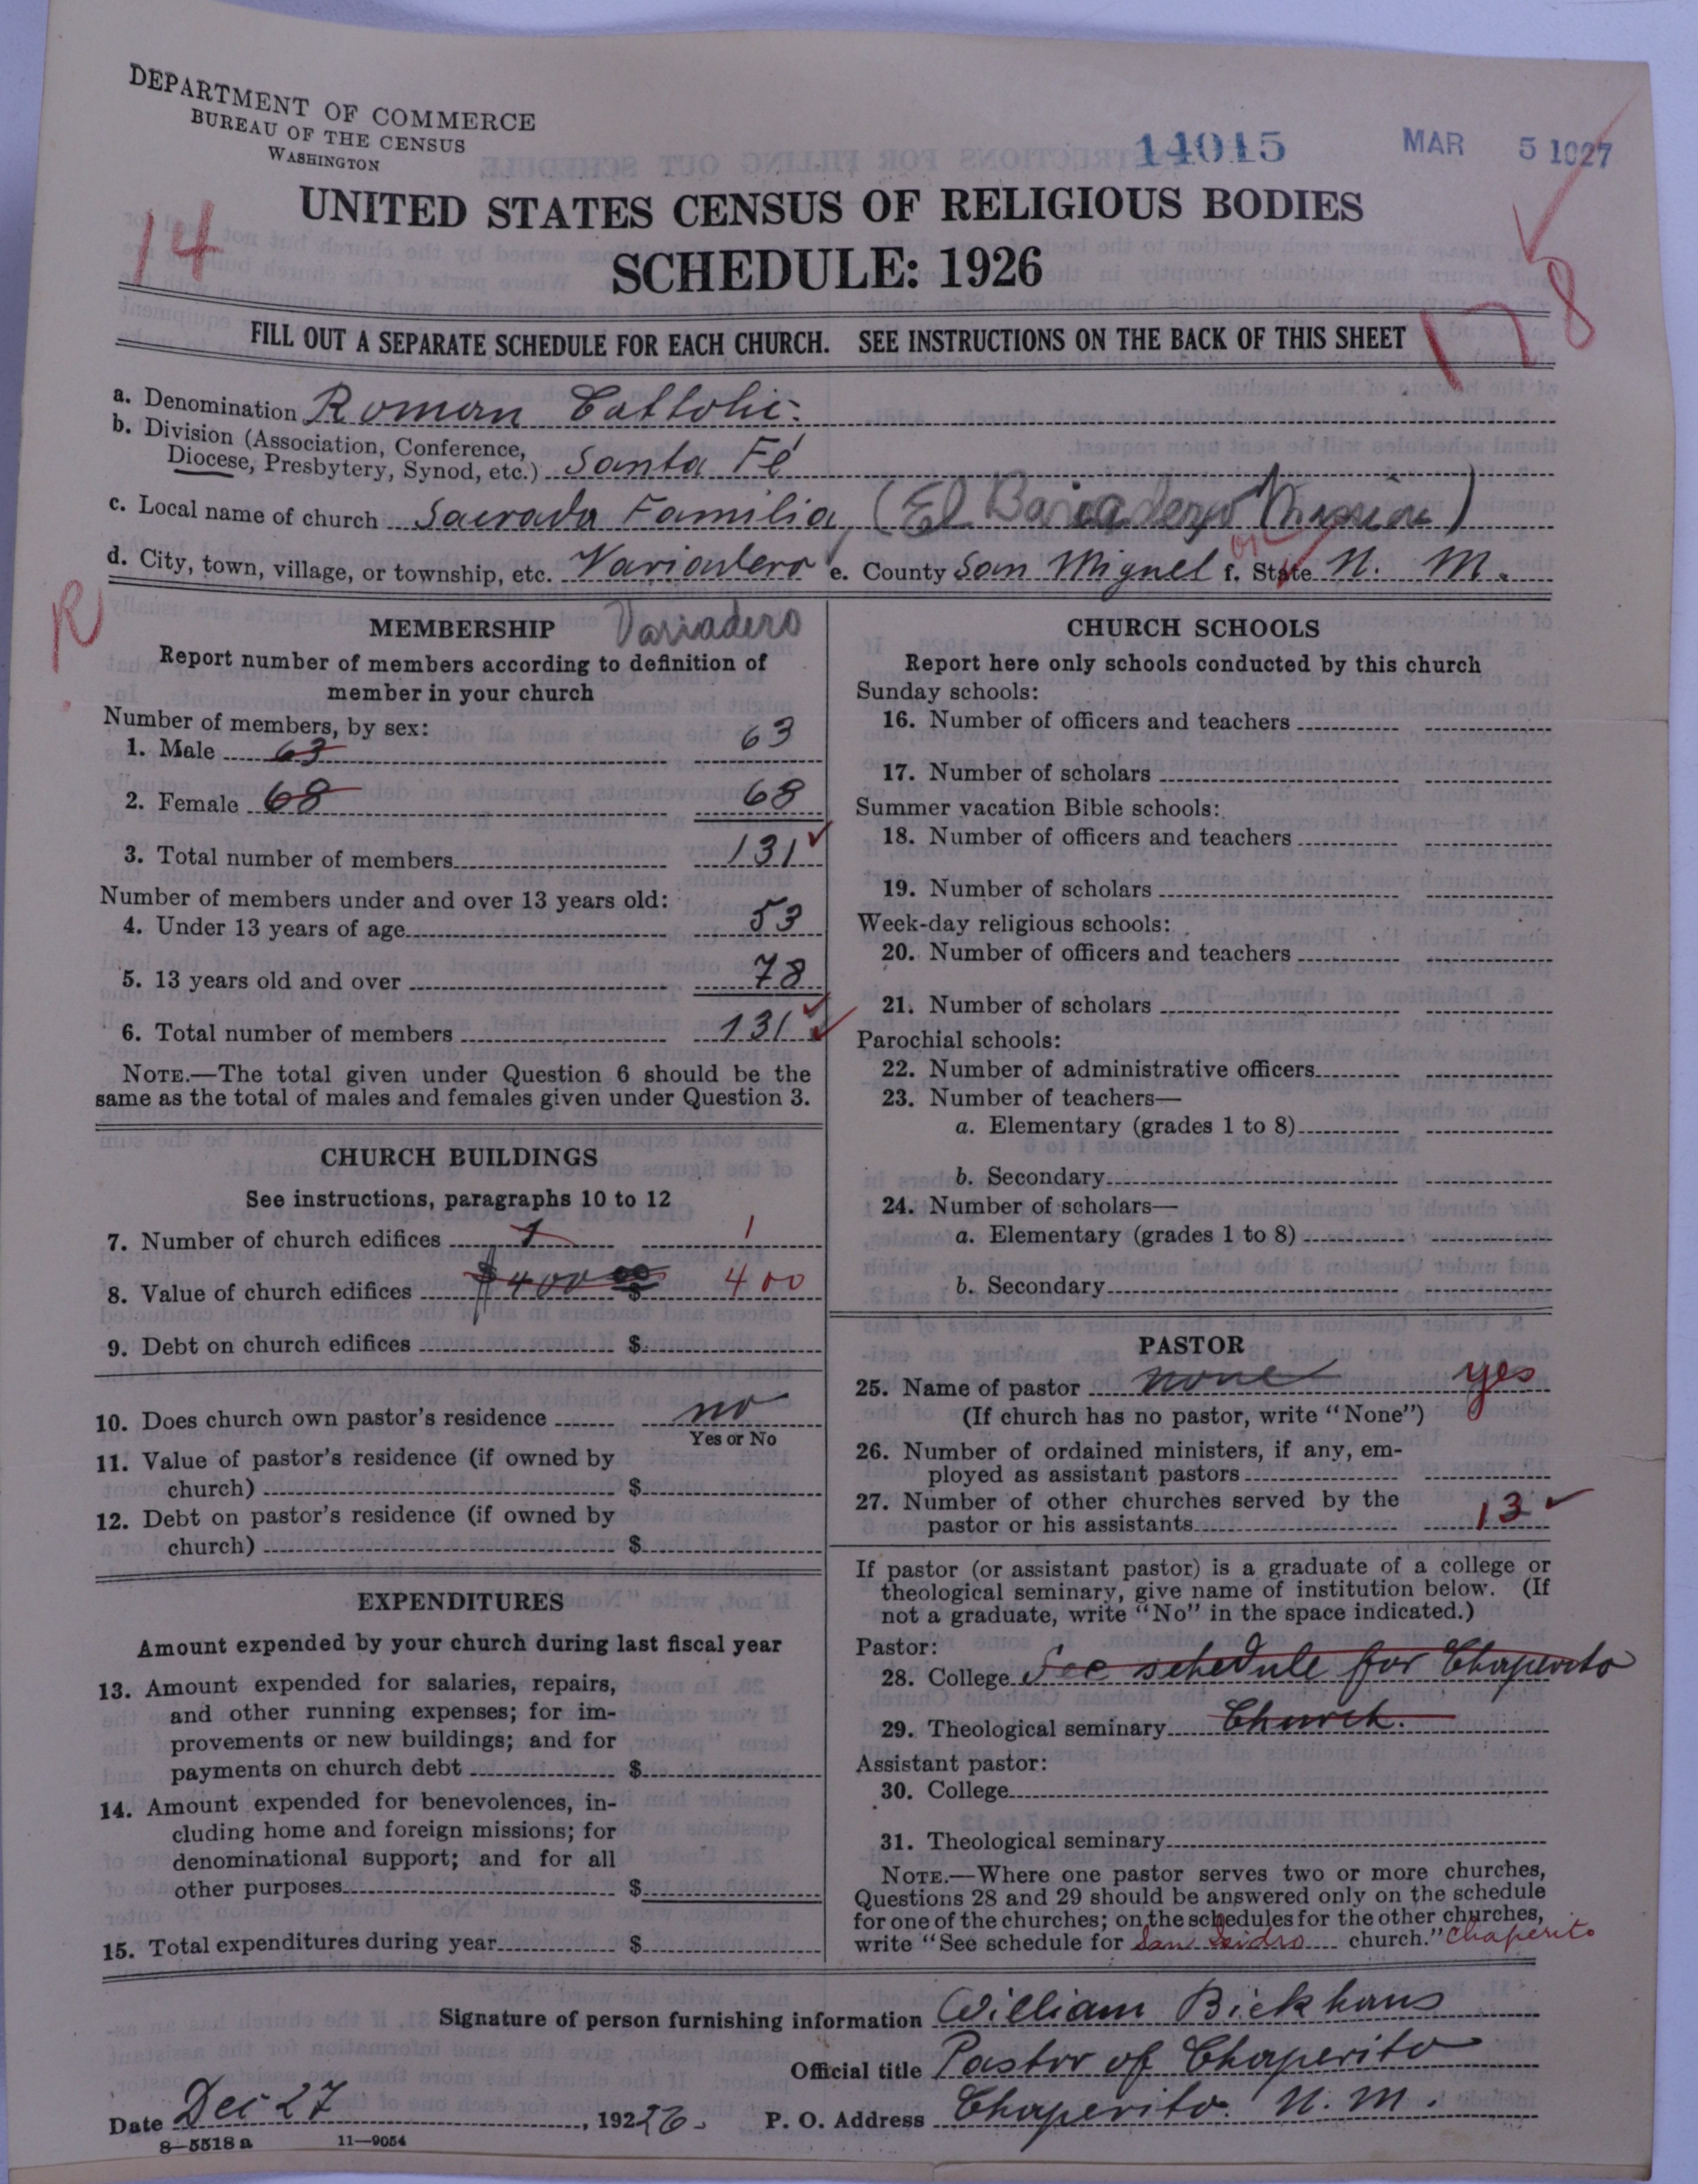 DEPARTMENT OF COMMERCE
BUREAU OF THE CENSUS
WASHINGTON
14015
MAR 5 1927
UNITED STATES CENSUS OF RELIGIOUS BODIES
14
SCHEDULE: 1926
178
FILL OUT A SEPARATE SCHEDULE FOR EACH CHURCH. SEE INSTRUCTIONS ON THE BACK OF THIS SHEET
a. Denomination Roman Catholic.
b. Division (Association, Conference,
Diocese, Presbytery, Synod, etc.) Santa Fé
c. Local name of church Sacrada Familia, (El Bariadero Mission)
d. City, town, village, or township, etc. Variadero e. County San Miguel f. State N. M.
R
MEMBERSHIP Variadero
Report number of members according to definition of
member in your church
Number of members, by sex:
1. Male 63 63
2. Female 68 68
3. Total number of members 131
Number of members under and over 13 years old:
4. Under 13 years of age 53
5. 13 years old and over 78
6. Total number of members 131
NOTE.—The total given under Question 6 should be the
same as the total of males and females given under Question 3.
CHURCH BUILDINGS
See instructions, paragraphs 10 to 12
7. Number of church edifices 1 1
8. Value of church edifices $400.00 $ 400
9. Debt on church edifices $
10. Does church own pastor's residence no
Yes or No
11. Value of pastor's residence (if owned by
church) $
12. Debt on pastor's residence (if owned by
church) $
EXPENDITURES
Amount expended by your church during last fiscal year
13. Amount expended for salaries, repairs,
and other running expenses; for im-
provements or new buildings; and for
payments on church debt $
14. Amount expended for benevolences, in-
cluding home and foreign missions; for
denominational support; and for all
other purposes $
15. Total expenditures during year $
CHURCH SCHOOLS
Report here only schools conducted by this church
Sunday schools:
16. Number of officers and teachers
17. Number of scholars
Summer vacation Bible schools:
18. Number of officers and teachers
19. Number of scholars
Week-day religious schools:
20. Number of officers and teachers
21. Number of scholars
Parochial schools:
22. Number of administrative officers
23. Number of teachers—
a. Elementary (grades 1 to 8)
b. Secondary
24. Number of scholars—
a. Elementary (grades 1 to 8)
b. Secondary
PASTOR
25. Name of pastor none yes
(If church has no pastor, write "None")
26. Number of ordained ministers, if any, em-
ployed as assistant pastors
27. Number of other churches served by the
pastor or his assistants 13
If pastor (or assistant pastor) is a graduate of a college or
theological seminary, give name of institution below. (If
not a graduate, write "No" in the space indicated.)
Pastor:
28. College See schedule for Chaperito
29. Theological seminary Church.
Assistant pastor:
30. College
31. Theological seminary
NOTE.—Where one pastor serves two or more churches,
Questions 28 and 29 should be answered only on the schedule
for one of the churches; on the schedules for the other churches,
write "See schedule for San Isidro church." Chaperito
Signature of person furnishing information William Bickhaus
Official title Pastor of Chaperito
Date Dec 27, 19226. P. O. Address Chaperito. N. M.
8—5518 a 11—9054